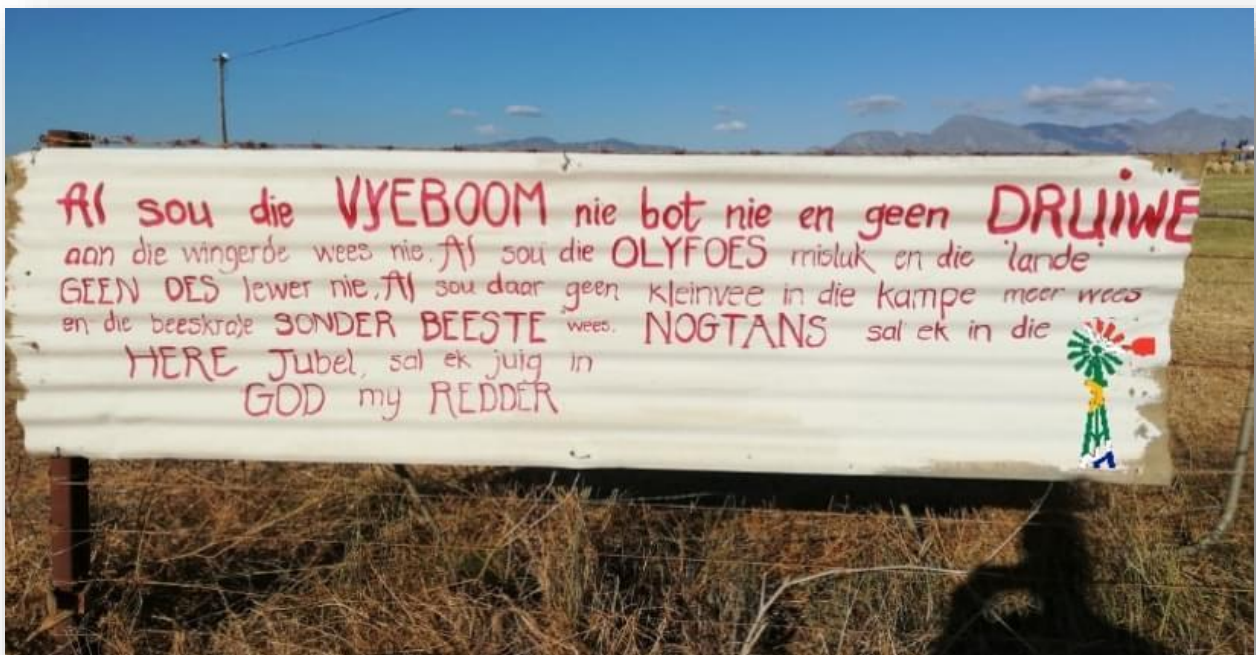 Al sou die VYEBOOM nie bot nie en geen DRUIWE
aan die wingerde wees nie. Al sou die OLYFOES misluk en die lande
GEEN OES lewer nie. Al sou daar geen kleinvee in die kampe meer wees
en die beeskrale SONDER BEESTE wees. NOGTANS sal ek in die
HERE Jubel, sal ek juig in
GOD my REDDER